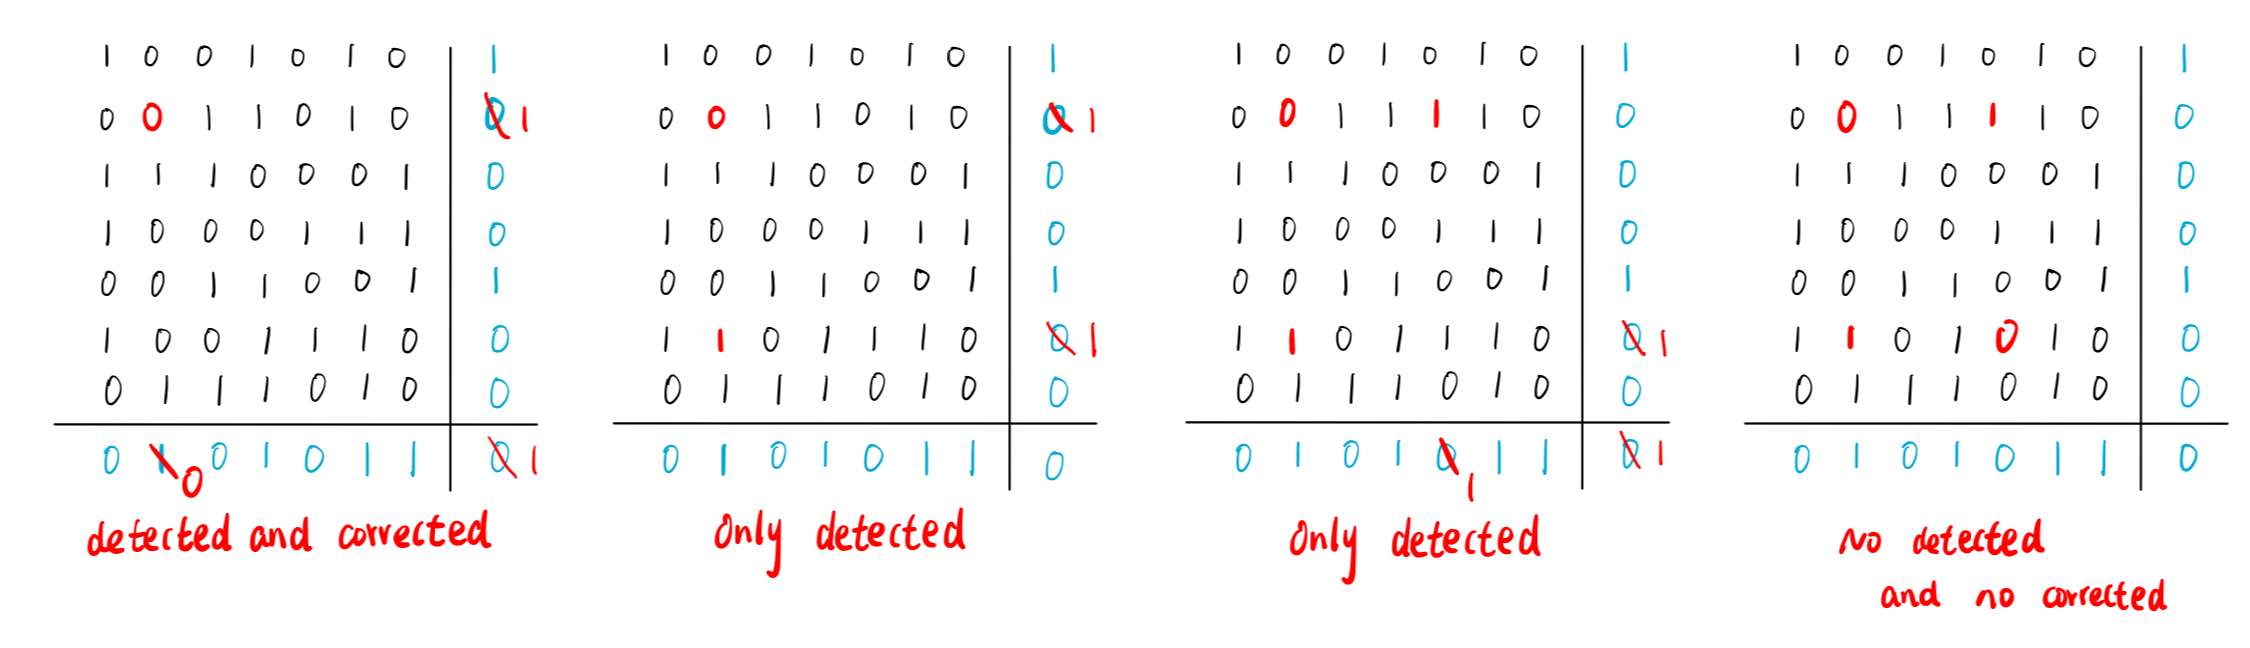 1 0 0 1 0 1 0 1
0 0 1 1 0 1 0 0 1
1 1 1 0 0 0 1 0
1 0 0 0 1 1 1 0
0 0 1 1 0 0 1 1
1 0 0 1 1 1 0 0
0 1 1 1 0 1 0 0
0 1 0 0 1 0 1 1 0 1
detected and corrected
1 0 0 1 0 1 0 1
0 0 1 1 0 1 0 0 1
1 1 1 0 0 0 1 0
1 0 0 0 1 1 1 0
0 0 1 1 0 0 1 1
1 1 0 1 1 1 0 0 1
0 1 1 1 0 1 0 0
0 1 0 1 0 1 1 0
Only detected
1 0 0 1 0 1 0 1
0 0 1 1 1 1 0 0
1 1 1 0 0 0 1 0
1 0 0 0 1 1 1 0
0 0 1 1 0 0 1 1
1 1 0 1 1 1 0 0 1
0 1 1 1 0 1 0 0
0 1 0 1 0 1 1 1 0 1
Only detected
1 0 0 1 0 1 0 1
0 0 1 1 1 1 0 0
1 1 1 0 0 0 1 0
1 0 0 0 1 1 1 0
0 0 1 1 0 0 1 1
1 1 0 1 0 1 0 0
0 1 1 1 0 1 0 0
0 1 0 1 0 1 1 0
No detected
and no corrected